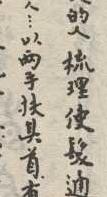 的人梳理使髮通
人…以兩手扶其首有